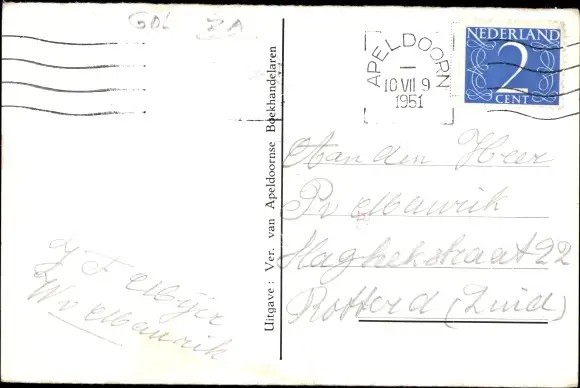 GOL ZA
APELDOORN
10 VII 9
1951
NEDERLAND
2
CENT
Uitgave: Ver. van Apeldoornse Boekhandelaren
Aan den Heer
P. v Maurik
Haghekstraat 22
Rotterd (Zuid)
J F Meijer
W v Maurik